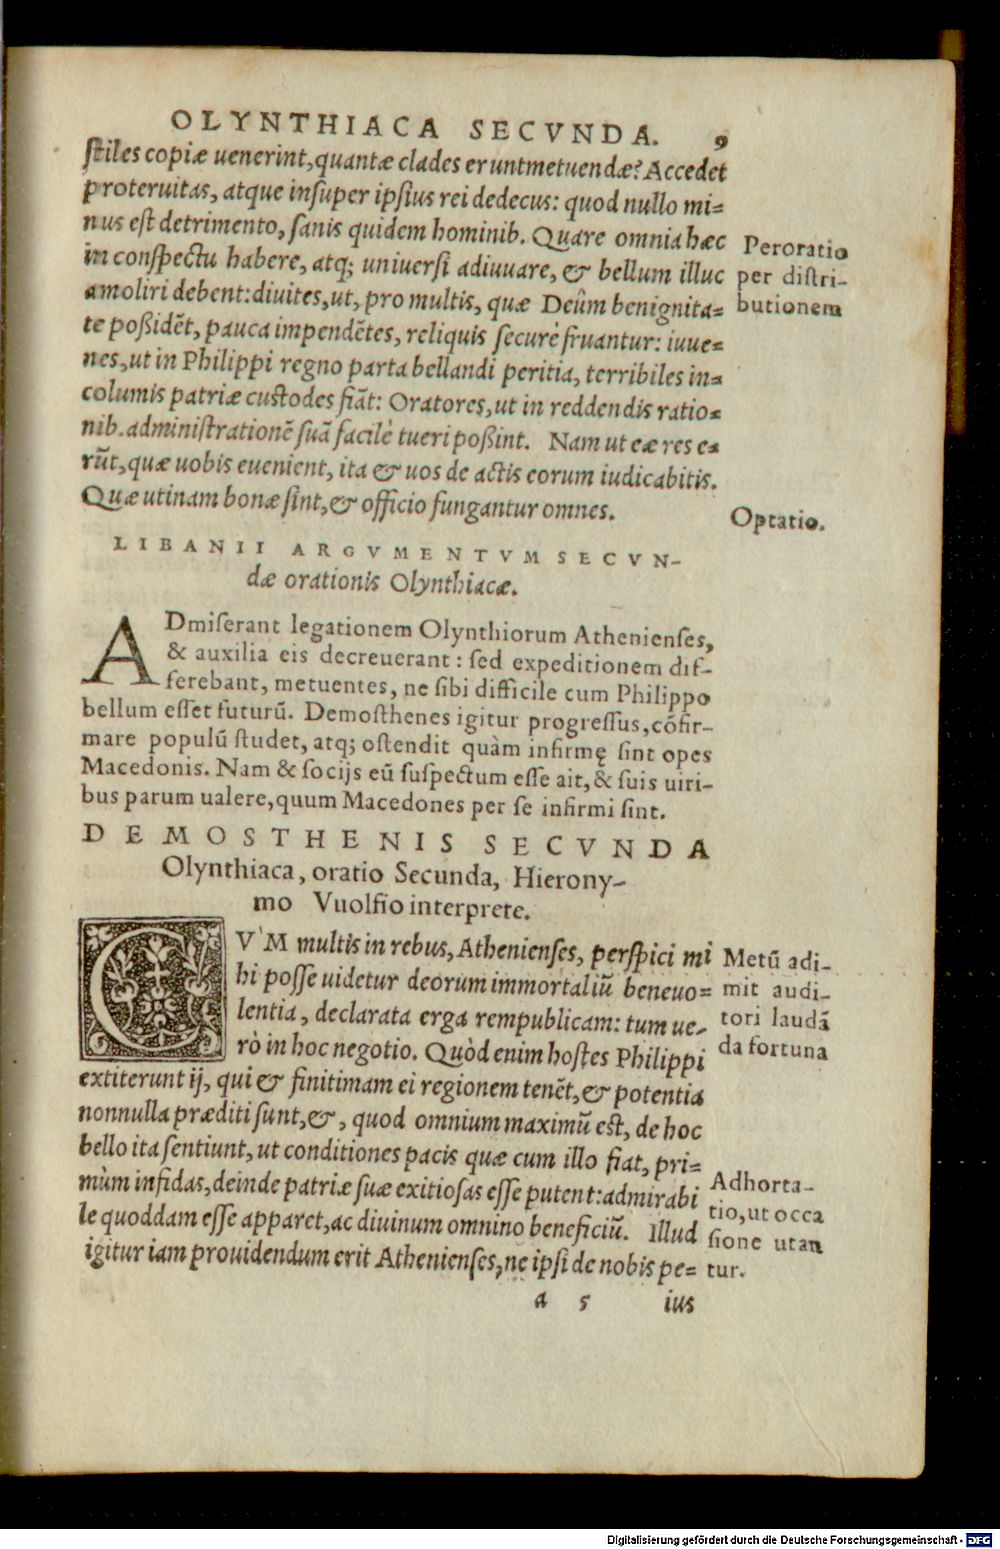 OLYNTHIACA SECVNDA. 9
ſtiles copiæ uenerint, quantæ clades eruntmetuendæ? Accedet
proteruitas, atque inſuper ipſius rei dedecus: quod nullo mi=
nus eſt detrimento, ſanis quidem hominib. Quare omnia hæc
in conſpectu habere, atq; uniuerſi adiuuare, & bellum illuc
amoliri debent: diuites, ut, pro multis, quæ Deûm benignita=
te poßidẽt, pauca impendẽtes, reliquis ſecurè fruantur: iuue=
nes, ut in Philippi regno parta bellandi peritia, terribiles in=
columis patriæ cuſtodes fiãt: Oratores, ut in reddendis ratio=
nib. adminiſtrationẽ ſuã facilè tueri poßint. Nam ut eæ res e=
rũt, quæ uobis euenient, ita & uos de actis eorum iudicabitis.
Quæ utinam bonæ ſint, & officio fungantur omnes.
Peroratio
per diſtri-
butionem
Optatio.
LIBANII ARGVMENTVM SECVN-
dæ orationis Olynthiacæ.
ADmiſerant legationem Olynthiorum Athenienſes,
& auxilia eis decreuerant: ſed expeditionem dif-
ferebant, metuentes, ne ſibi difficile cum Philippo
bellum eſſet futurũ. Demoſthenes igitur progreſſus, cõfir-
mare populũ ſtudet, atq; oſtendit quàm infirmę ſint opes
Macedonis. Nam & ſocijs eũ ſuſpectum eſſe ait, & ſuis uiri-
bus parum ualere, quum Macedones per ſe infirmi ſint.
DEMOSTHENIS SECVNDA
Olynthiaca, oratio Secunda, Hierony-
mo Vuolfio interprete.
CVM multis in rebus, Athenienſes, perſpici mi
hi poſſe uidetur deorum immortaliũ beneuo=
lentia, declarata erga rempublicam: tum ue-
rò in hoc negotio. Quòd enim hoſtes Philippi
extiterunt ij, qui & finitimam ei regionem tenẽt, & potentia
nonnulla præditi ſunt, &, quod omnium maximũ eſt, de hoc
bello ita ſentiunt, ut conditiones pacis quæ cum illo fiat, pri=
mùm infidas, deinde patriæ ſuæ exitioſas eſſe putent: admirabi
le quoddam eſſe apparet, ac diuinum omnino beneficiũ. Illud
igitur iam prouidendum erit Athenienſes, ne ipſi de nobis pe=
Metũ adi-
mit audi-
tori laudã
da fortuna
Adhorta-
tio, ut occa
ſione utan
tur.
a 5 ius
Digitalisierung gefördert durch die Deutsche Forschungsgemeinschaft - DFG